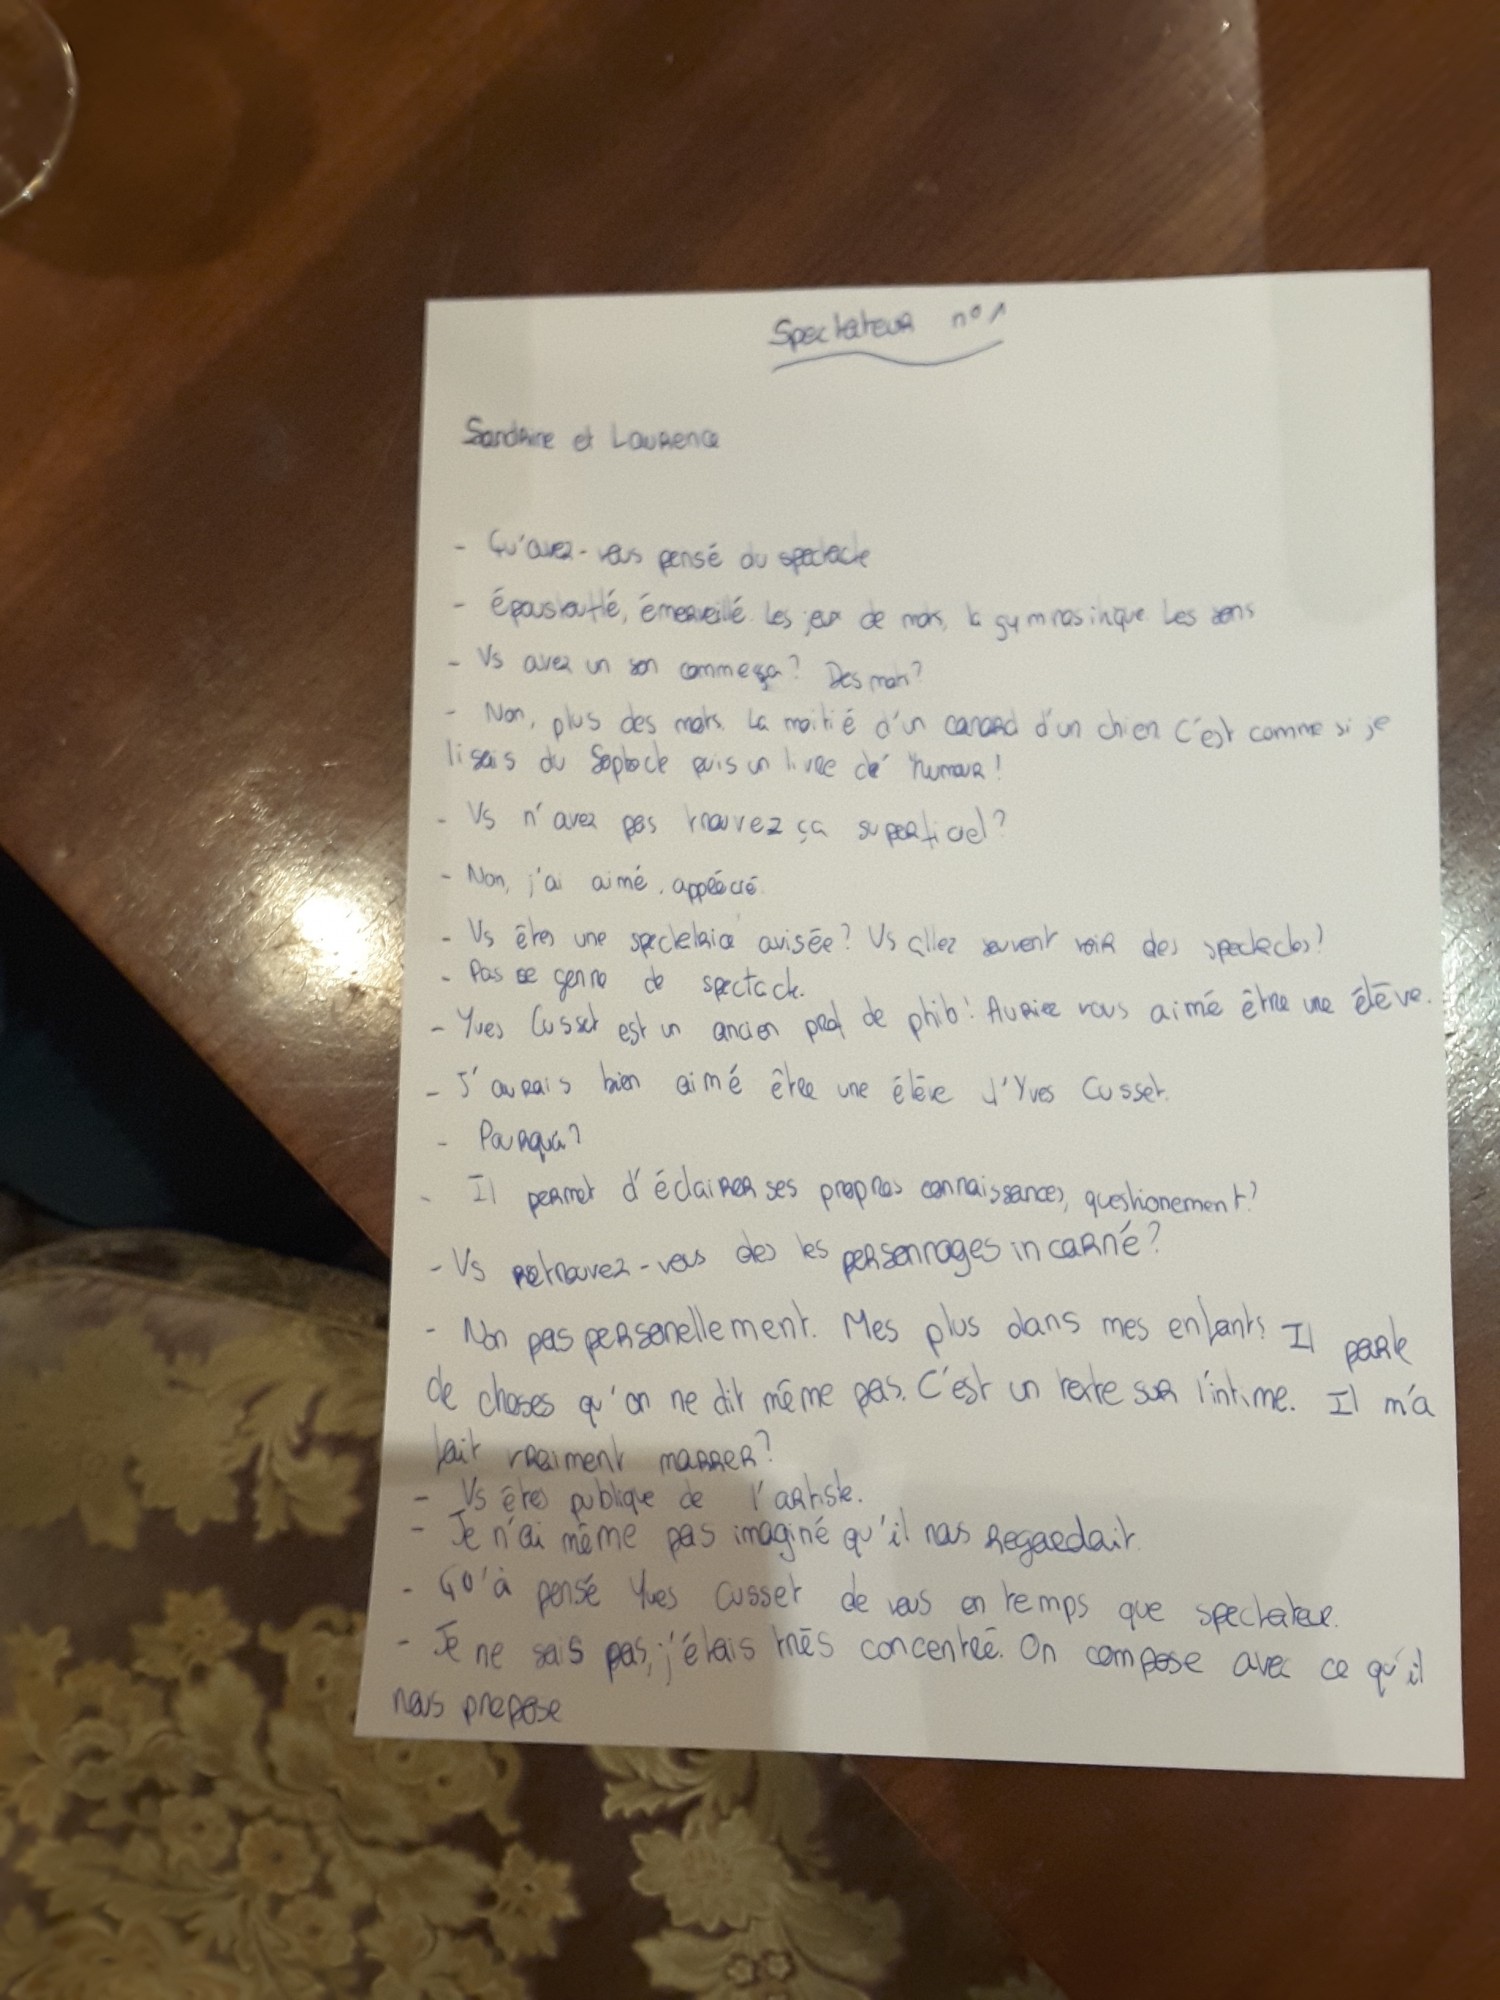 Spectateur n°1
Sandrine et Laurence
- Qu'avez-vous pensé du spectacle
- époustouflé, émerveillé. Les jeux de mots, la gymnastique. Les sons
- Vs avez un son comme ça? Des mots?
- Non, plus des mots. La moitié d'un canard d'un chien C'est comme si je
lisais du Sophocle puis un livre de humour!
- Vs n'avez pas trouvez ça superficiel?
- Non, j'ai aimé, apprécié.
- Vs êtes une spectatrice avisée? Vs allez souvent voir des spectacles?
- Pas ce genre de spectacle.
- Yves Cusset est un ancien prof de philo! Auriez vous aimé être une élève.
- J'aurais bien aimé être une élève d'Yves Cusset.
- Pourquoi?
- Il permet d'éclairer ses propres connaissances, questionement?
- Vs retrouvez-vous des les personnages incarné?
- Non pas personellement. Mes plus dans mes enfants Il parle
de choses qu'on ne dit même pas. C'est un texte sur l'intime. Il m'a
fait vraiment marrer?
- Vs êtes publique de l'artiste.
- Je n'ai même pas imaginé qu'il nous regardait.
- Qu'à pensé Yves Cusset de vous en temps que spectateur.
- Je ne sais pas, j'étais très concentré. On compose avec ce qu'il
nous propose